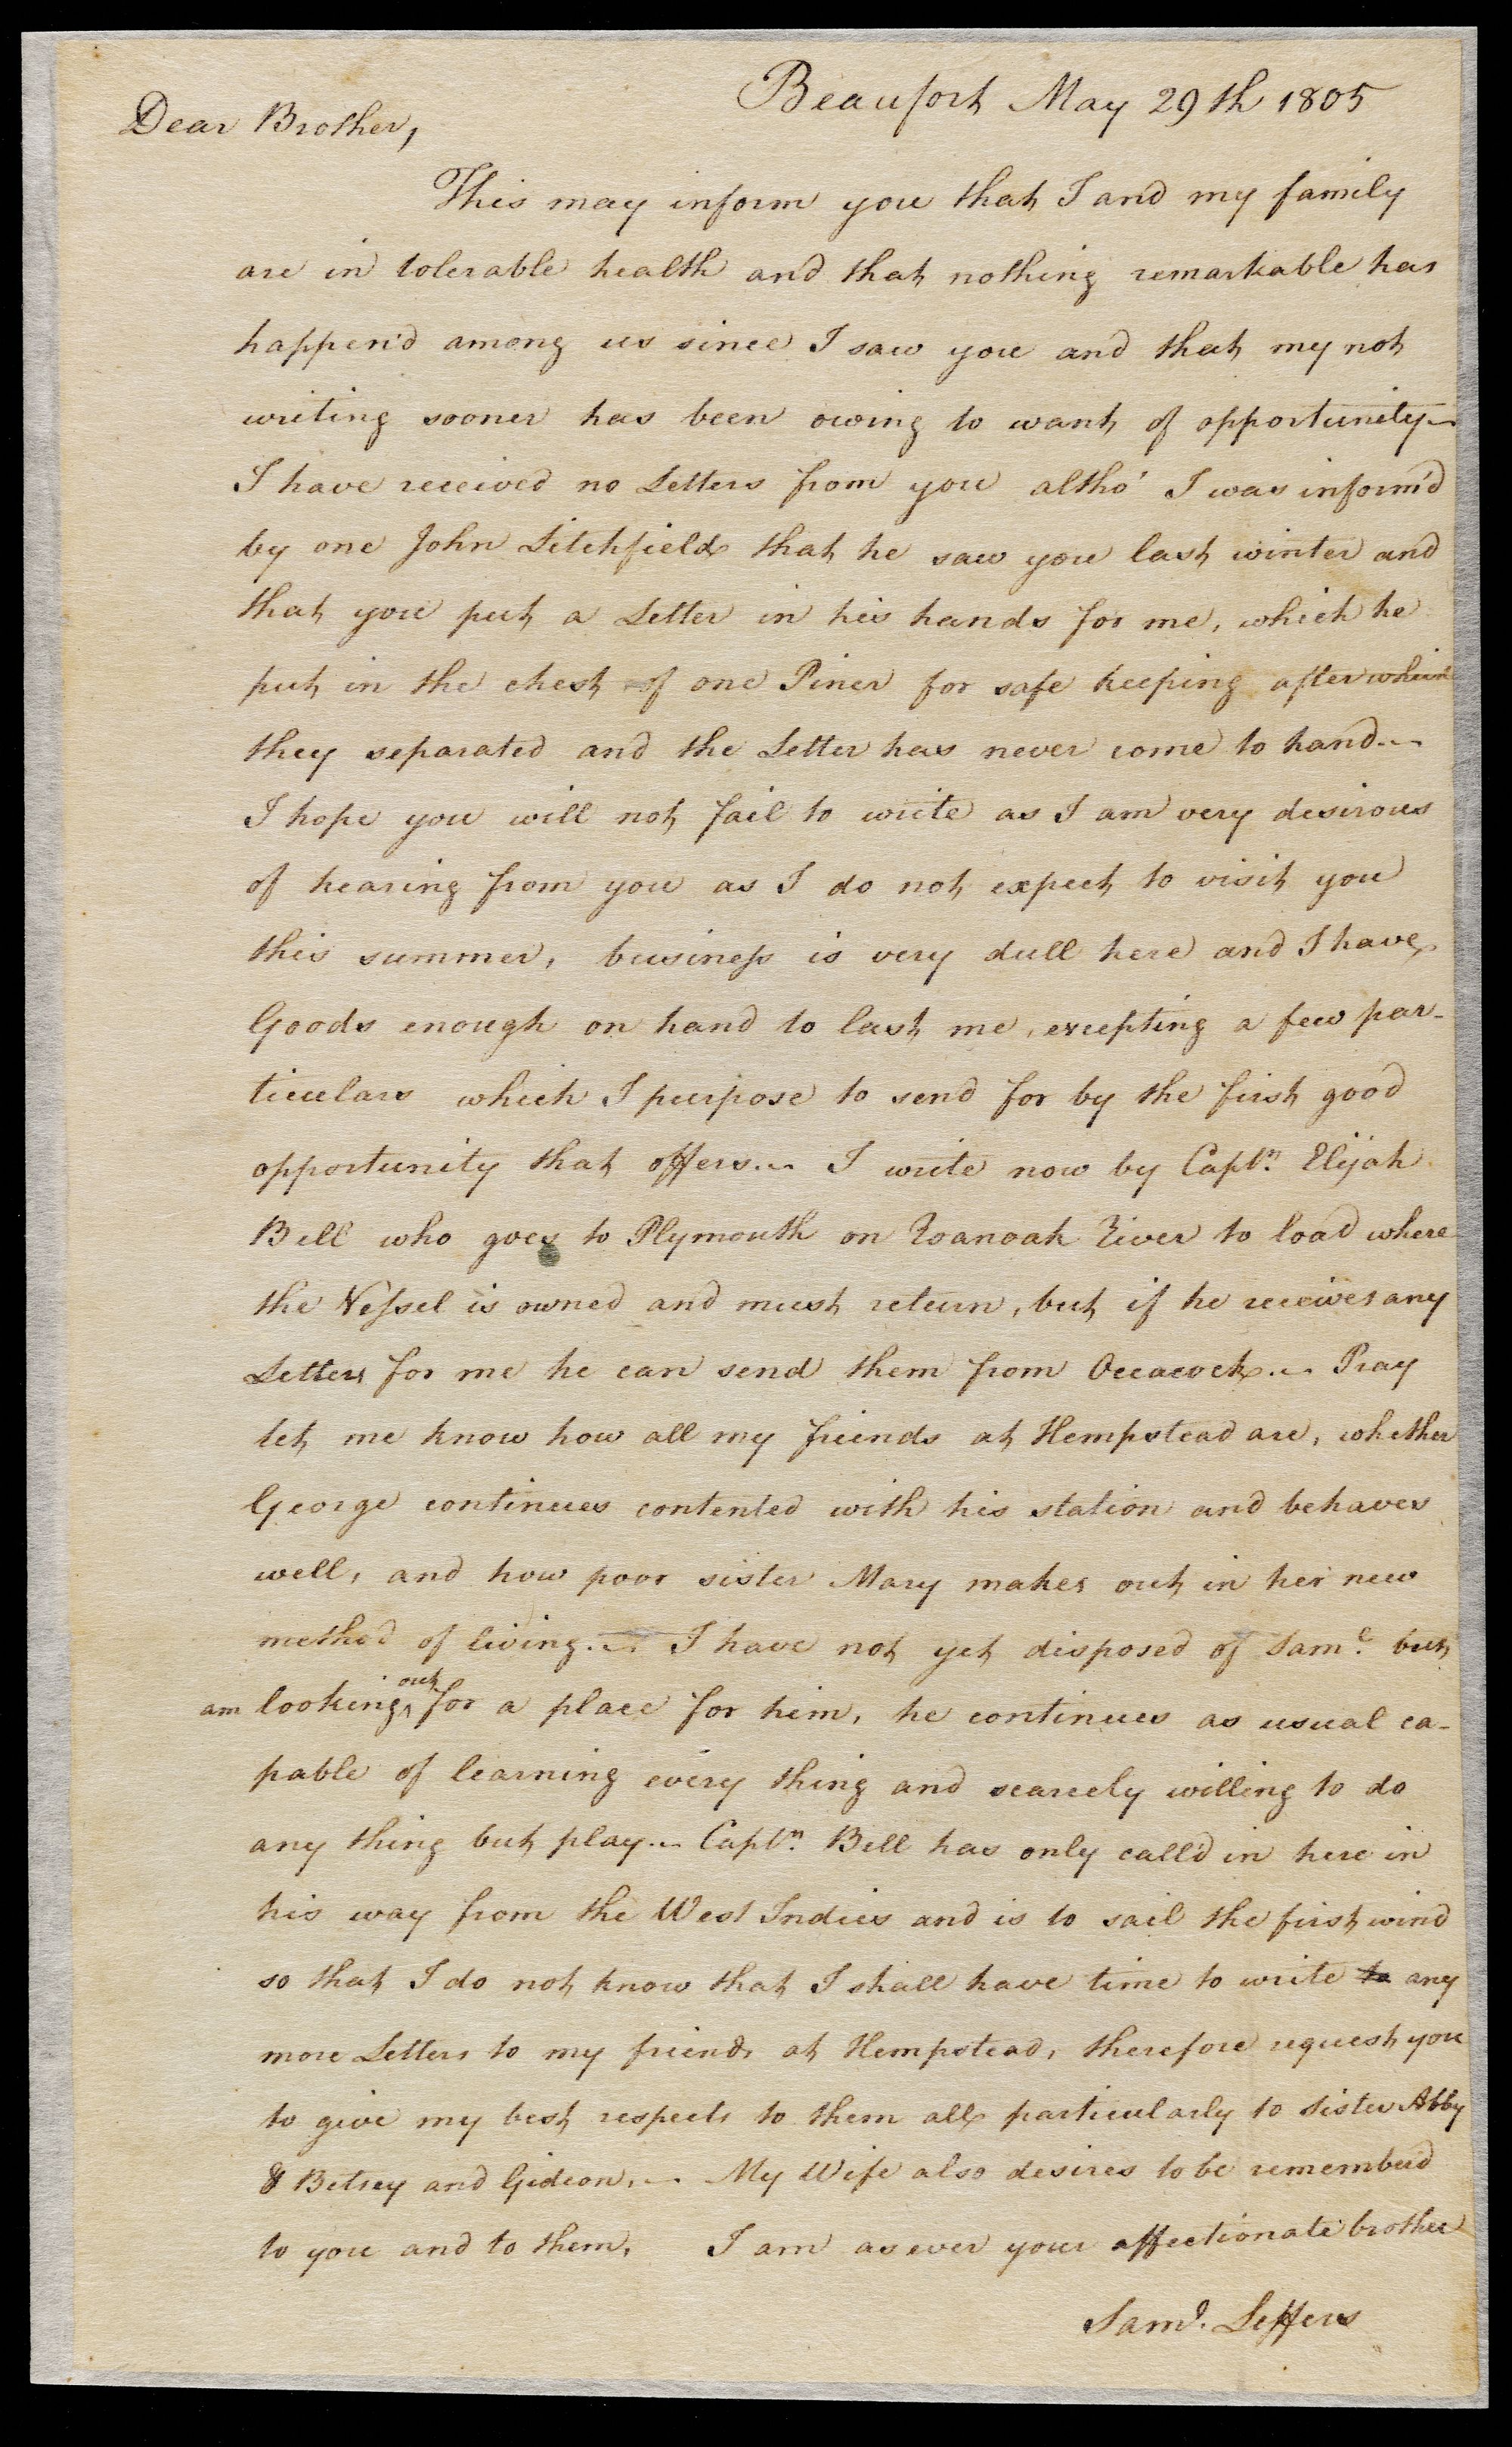 Beaufort May 29th 1805
Dear Brother,
This may inform you that I and my family
are in tolerable health and that nothing remarkable has
happen'd among us since I saw you and that my not
writing sooner has been owing to want of opportunity—
I have received no Letters from you altho' I was inform'd
by one John Litchfield that he saw you last winter and
that you put a Letter in his hands for me, which he
put in the chest of one Piner for safe keeping after which
they separated and the Letter has never come to hand...
I hope you will not fail to write as I am very desirous
of hearing from you as I do not expect to visit you
this summer, business is very dull here and I have
Goods enough on hand to last me, excepting a few par-
ticulars which I purpose to send for by the first good
opportunity that offers... I write now by Captn. Elijah
Bell who goes to Plymouth on Roanoak River to load where
the Vessel is owned and must return, but if he receives any
Letters for me he can send them from Occacock... Pray
let me know how all my friends at Hempstead are, whether
George continues contented with his station and behaves
well, and how poor sister Mary makes out in her new
method of living... I have not yet disposed of Saml. but
am looking out for a place for him, he continues as usual ca-
pable of learning every thing and scarcely willing to do
any thing but play... Captn. Bell has only call'd in here in
his way from the West Indies and is to sail the first wind
so that I do not know that I shall have time to write to any
more Letters to my friends at Hempstead, therefore request you
to give my best respects to them all particularly to Sister Abby
& Betsey and Gideon... My Wife also desires to be rememberd
to you and to them, I am as ever your affectionate brother
Saml. Leffers